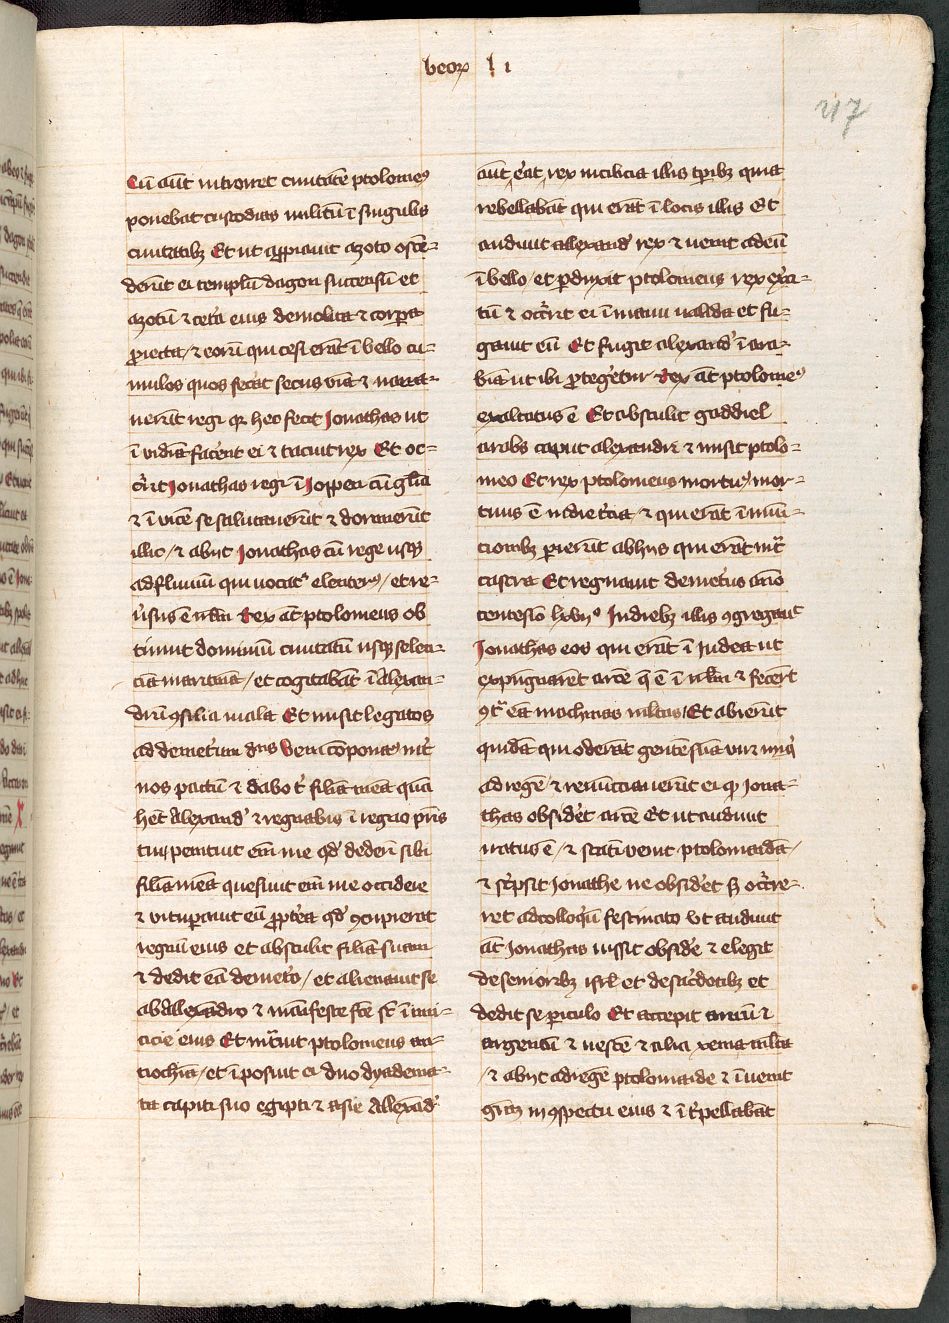 beoꝝ l i
217
Cū aūt introiret ciuitatē ptolomeꝰ
ponebat custodias militū ī singulis
ciuitatibꝫ Et ut appꝓiauit azoto ostē-
derūt ei templū dagon succensū et
azotū ⁊ cetera eius demolita ⁊ corpora
ꝓiecta / ⁊ eorū qui cesi erāt ī bello tu-
mulos quos fecerat secus viā ⁊ narra-
uerūt regi qꝛ hec fecit Jonathas ut
īuidiā facerēt ei ⁊ tacuit rex Et oc-
currit Jonathas regi ī Joppen cū gloria
⁊ īuicē se salutauerūt ⁊ dormierūt
illic / ⁊ abijt Jonathas cū rege usqꝫ
ad fluuiū qui uocatꝰ eleuterꝰ / et re-
uersus ē ī ierlm Rex aūt ptolomeus ob
tinuit dominiū ciuitatū usqꝫ seleu-
ciā maritimā / et cogitabat ī Alexan-
drū ꝯsilia mala Et misit legatos
ad demetriū dns Veni cōponamꝰ int
nos pactū ⁊ dabo t filiā meā quā
het Alexand ⁊ regnabis ī regno pris
tui / penituit em me qd dederī sibi
filiā meā quesiuit em me occidere
⁊ vitupauit eū ꝓpterea qd ꝯcupierat
regnū eius et abstulit filiā suam
⁊ dedit eā demetrio / et alienauit se
ab Allexandro ⁊ manifeste fce st īimi-
cicie eius Et intrauit ptolomeus an-
tiochia / et īposuit ei duo dyadema-
ta capiti suo egipti ⁊ asie Allexād
aūt erat rex incilicia illis tpibꝫ quia
rebellabāt qui erāt ī locis illis Et
audiuit allexand rex ⁊ uenit ad eū
ī bello / et pduxit ptolomeus rex exci-
tū ⁊ occrrit ei ī manu ualida et fu-
gauit eū Et fugit alexand ī ara-
biā ut ibi ptegetur Rex aūt ptolomeꝰ
exaltatus ē Et abstulit gaddiel
arabs caput alexandri ⁊ misit ptolo-
meo Et rex ptolomeus mortuꝰ / mor-
tuus ē in die tercia / ⁊ qui erāt ī mūi-
cionibꝫ perierūt ab hijs qui erāt intra
castra Et regnauit demetrius āno
centesīo lxvijº In diebꝫ illis ꝯgregauit
Jonathas eos qui erāt ī Judea ut
expugnaret arcē q ē ī ierlm ⁊ fecerūt
ꝯtra eā machinas multas / Et abierūt
quidā qui oderāt gentē suā viri iniq
ad regē / ⁊ renūciauerūt ei qꝫ Jona-
thas obsidet arcē Et ut audiuit
iratus ē / ⁊ statī venit ptolomaidā /
⁊ scpsit Jonathe ne obsidet sꝫ occrre-
ret ad colloqū festinato Vt audiuit
āt Jonathas iussit obside ⁊ elegit
de senioribꝫ isrl et de sacerdotibꝫ et
dedit se piculo Et accepit aurū ⁊
argentū ⁊ uestē ⁊ alia xenia multa
/ ⁊ abijt ad regē ptolomaide ⁊ īuenit
gram in ꝯspectu eius ⁊ īterpellabāt